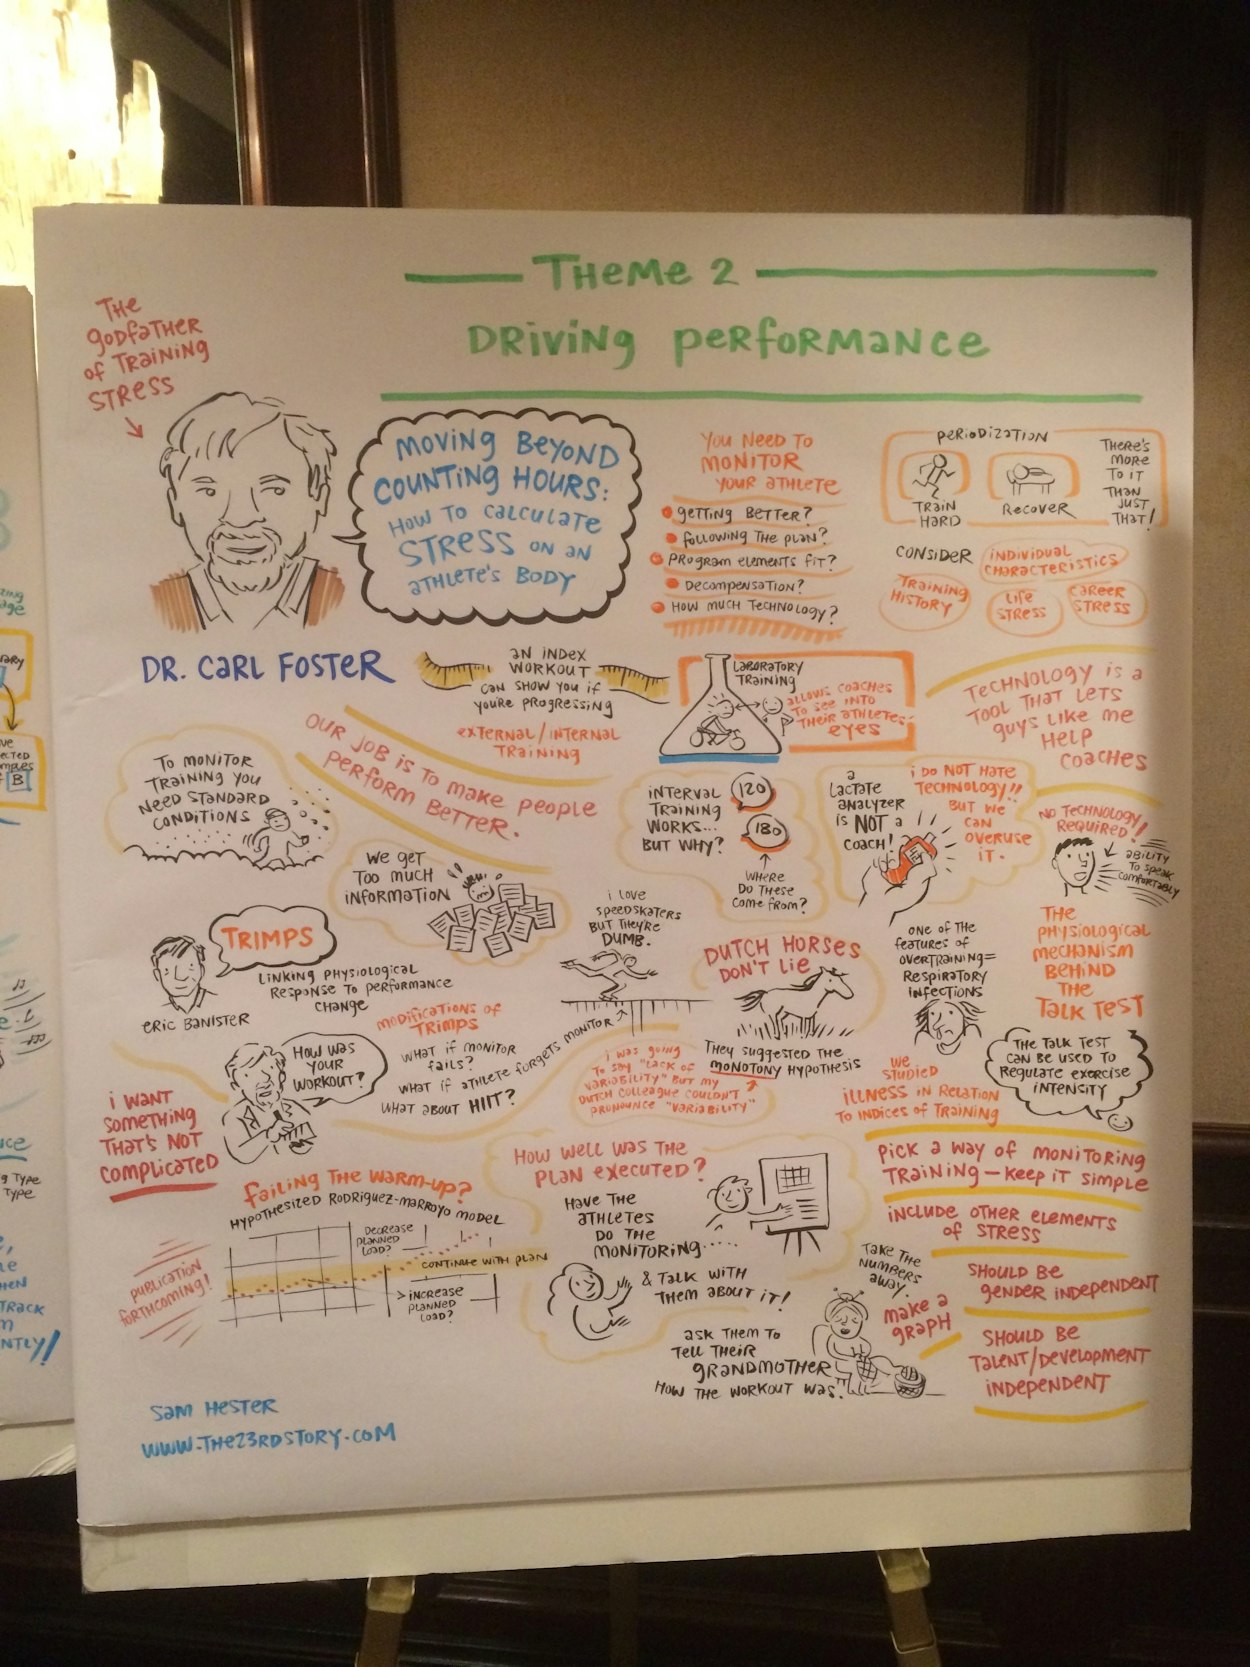 THEME 2
DRIVING PERFORMANCE
THE
GODFATHER
OF TRAINING
STRESS
MOVING BEYOND
COUNTING HOURS:
HOW TO CALCULATE
STRESS ON AN
ATHLETE'S BODY
DR. CARL FOSTER
YOU NEED TO
MONITOR
YOUR ATHLETE
GETTING BETTER?
FOLLOWING THE PLAN?
PROGRAM ELEMENTS FIT?
DECOMPENSATION?
HOW MUCH TECHNOLOGY?
PERIODIZATION
TRAIN
HARD
RECOVER
THERE'S
MORE
TO IT
THAN
JUST
THAT!
CONSIDER
INDIVIDUAL
CHARACTERISTICS
TRAINING
HISTORY
LIFE
STRESS
CAREER
STRESS
AN INDEX
WORKOUT
CAN SHOW YOU IF
YOU'RE PROGRESSING
EXTERNAL/INTERNAL
TRAINING
LABORATORY
TRAINING
ALLOWS COACHES
TO SEE INTO
THEIR ATHLETES'
EYES
TECHNOLOGY IS A
TOOL THAT LETS
GUYS LIKE ME
HELP
COACHES
OUR JOB IS TO MAKE PEOPLE
PERFORM BETTER.
TO MONITOR
TRAINING YOU
NEED STANDARD
CONDITIONS
WE GET
TOO MUCH
INFORMATION
INTERVAL
TRAINING
WORKS...
BUT WHY?
120
180
WHERE
DO THESE
COME FROM?
A
LACTATE
ANALYZER
IS NOT A
COACH!
I DO NOT HATE
TECHNOLOGY!!
BUT WE
CAN
OVERUSE
IT.
NO TECHNOLOGY
REQUIRED!
ABILITY
TO SPEAK
COMFORTABLY
THE
PHYSIOLOGICAL
MECHANISM
BEHIND
THE
TALK TEST
THE TALK TEST
CAN BE USED TO
REGULATE EXERCISE
INTENSITY
TRIMPS
ERIC BANISTER
LINKING PHYSIOLOGICAL
RESPONSE TO PERFORMANCE
CHANGE
I LOVE
SPEEDSKATERS
BUT THEY'RE
DUMB.
MODIFICATIONS OF
TRIMPS
WHAT IF MONITOR
FAILS?
WHAT IF ATHLETE FORGETS MONITOR
WHAT ABOUT HIIT?
DUTCH HORSES
DON'T LIE
THEY SUGGESTED THE
MONOTONY HYPOTHESIS
I WAS GOING
TO SAY "LACK OF
VARIABILITY" BUT MY
DUTCH COLLEAGUE COULDN'T
PRONOUNCE "VARIABILITY"
ONE OF THE
FEATURES OF
OVERTRAINING=
RESPIRATORY
INFECTIONS
WE
STUDIED
ILLNESS IN RELATION
TO INDICES OF TRAINING
HOW WAS
YOUR
WORKOUT?
I WANT
SOMETHING
THAT'S NOT
COMPLICATED
FAILING THE WARM-UP?
HYPOTHESIZED RODRIGUEZ-MARROYO MODEL
DECREASE
PLANNED
LOAD?
CONTINUE WITH PLAN
> INCREASE
PLANNED
LOAD?
PUBLICATION
FORTHCOMING!
HOW WELL WAS THE
PLAN EXECUTED?
HAVE THE
ATHLETES
DO THE
MONITORING.....
& TALK WITH
THEM ABOUT IT!
ASK THEM TO
TELL THEIR
GRANDMOTHER
HOW THE WORKOUT WAS.
TAKE THE
NUMBERS
AWAY.
MAKE A
GRAPH
PICK A WAY OF MONITORING
TRAINING — KEEP IT SIMPLE
INCLUDE OTHER ELEMENTS
OF STRESS
SHOULD BE
GENDER INDEPENDENT
SHOULD BE
TALENT/DEVELOPMENT
INDEPENDENT
SAM HESTER
WWW.THE23RDSTORY.COM